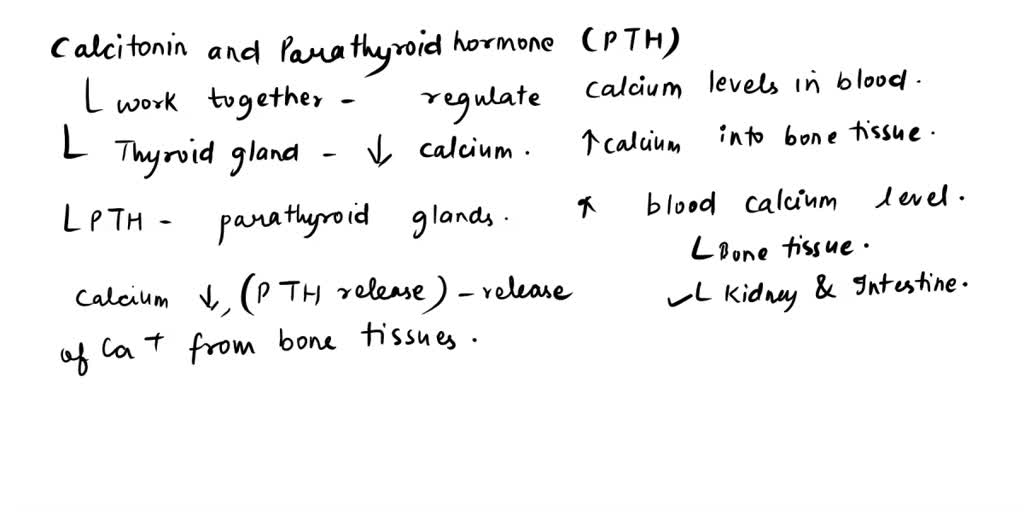 Calcitonin and Parathyroid hormone (PTH)
L work together - regulate calcium levels in blood.
L Thyroid gland - ↓ calcium. ↑ calcium into bone tissue.
L PTH - parathyroid glands. ↑ blood calcium level.
L Bone tissue.
Calcium ↓, (PTH release) - release
✓L Kidney & Intestine.
of Ca+ from bone tissues.